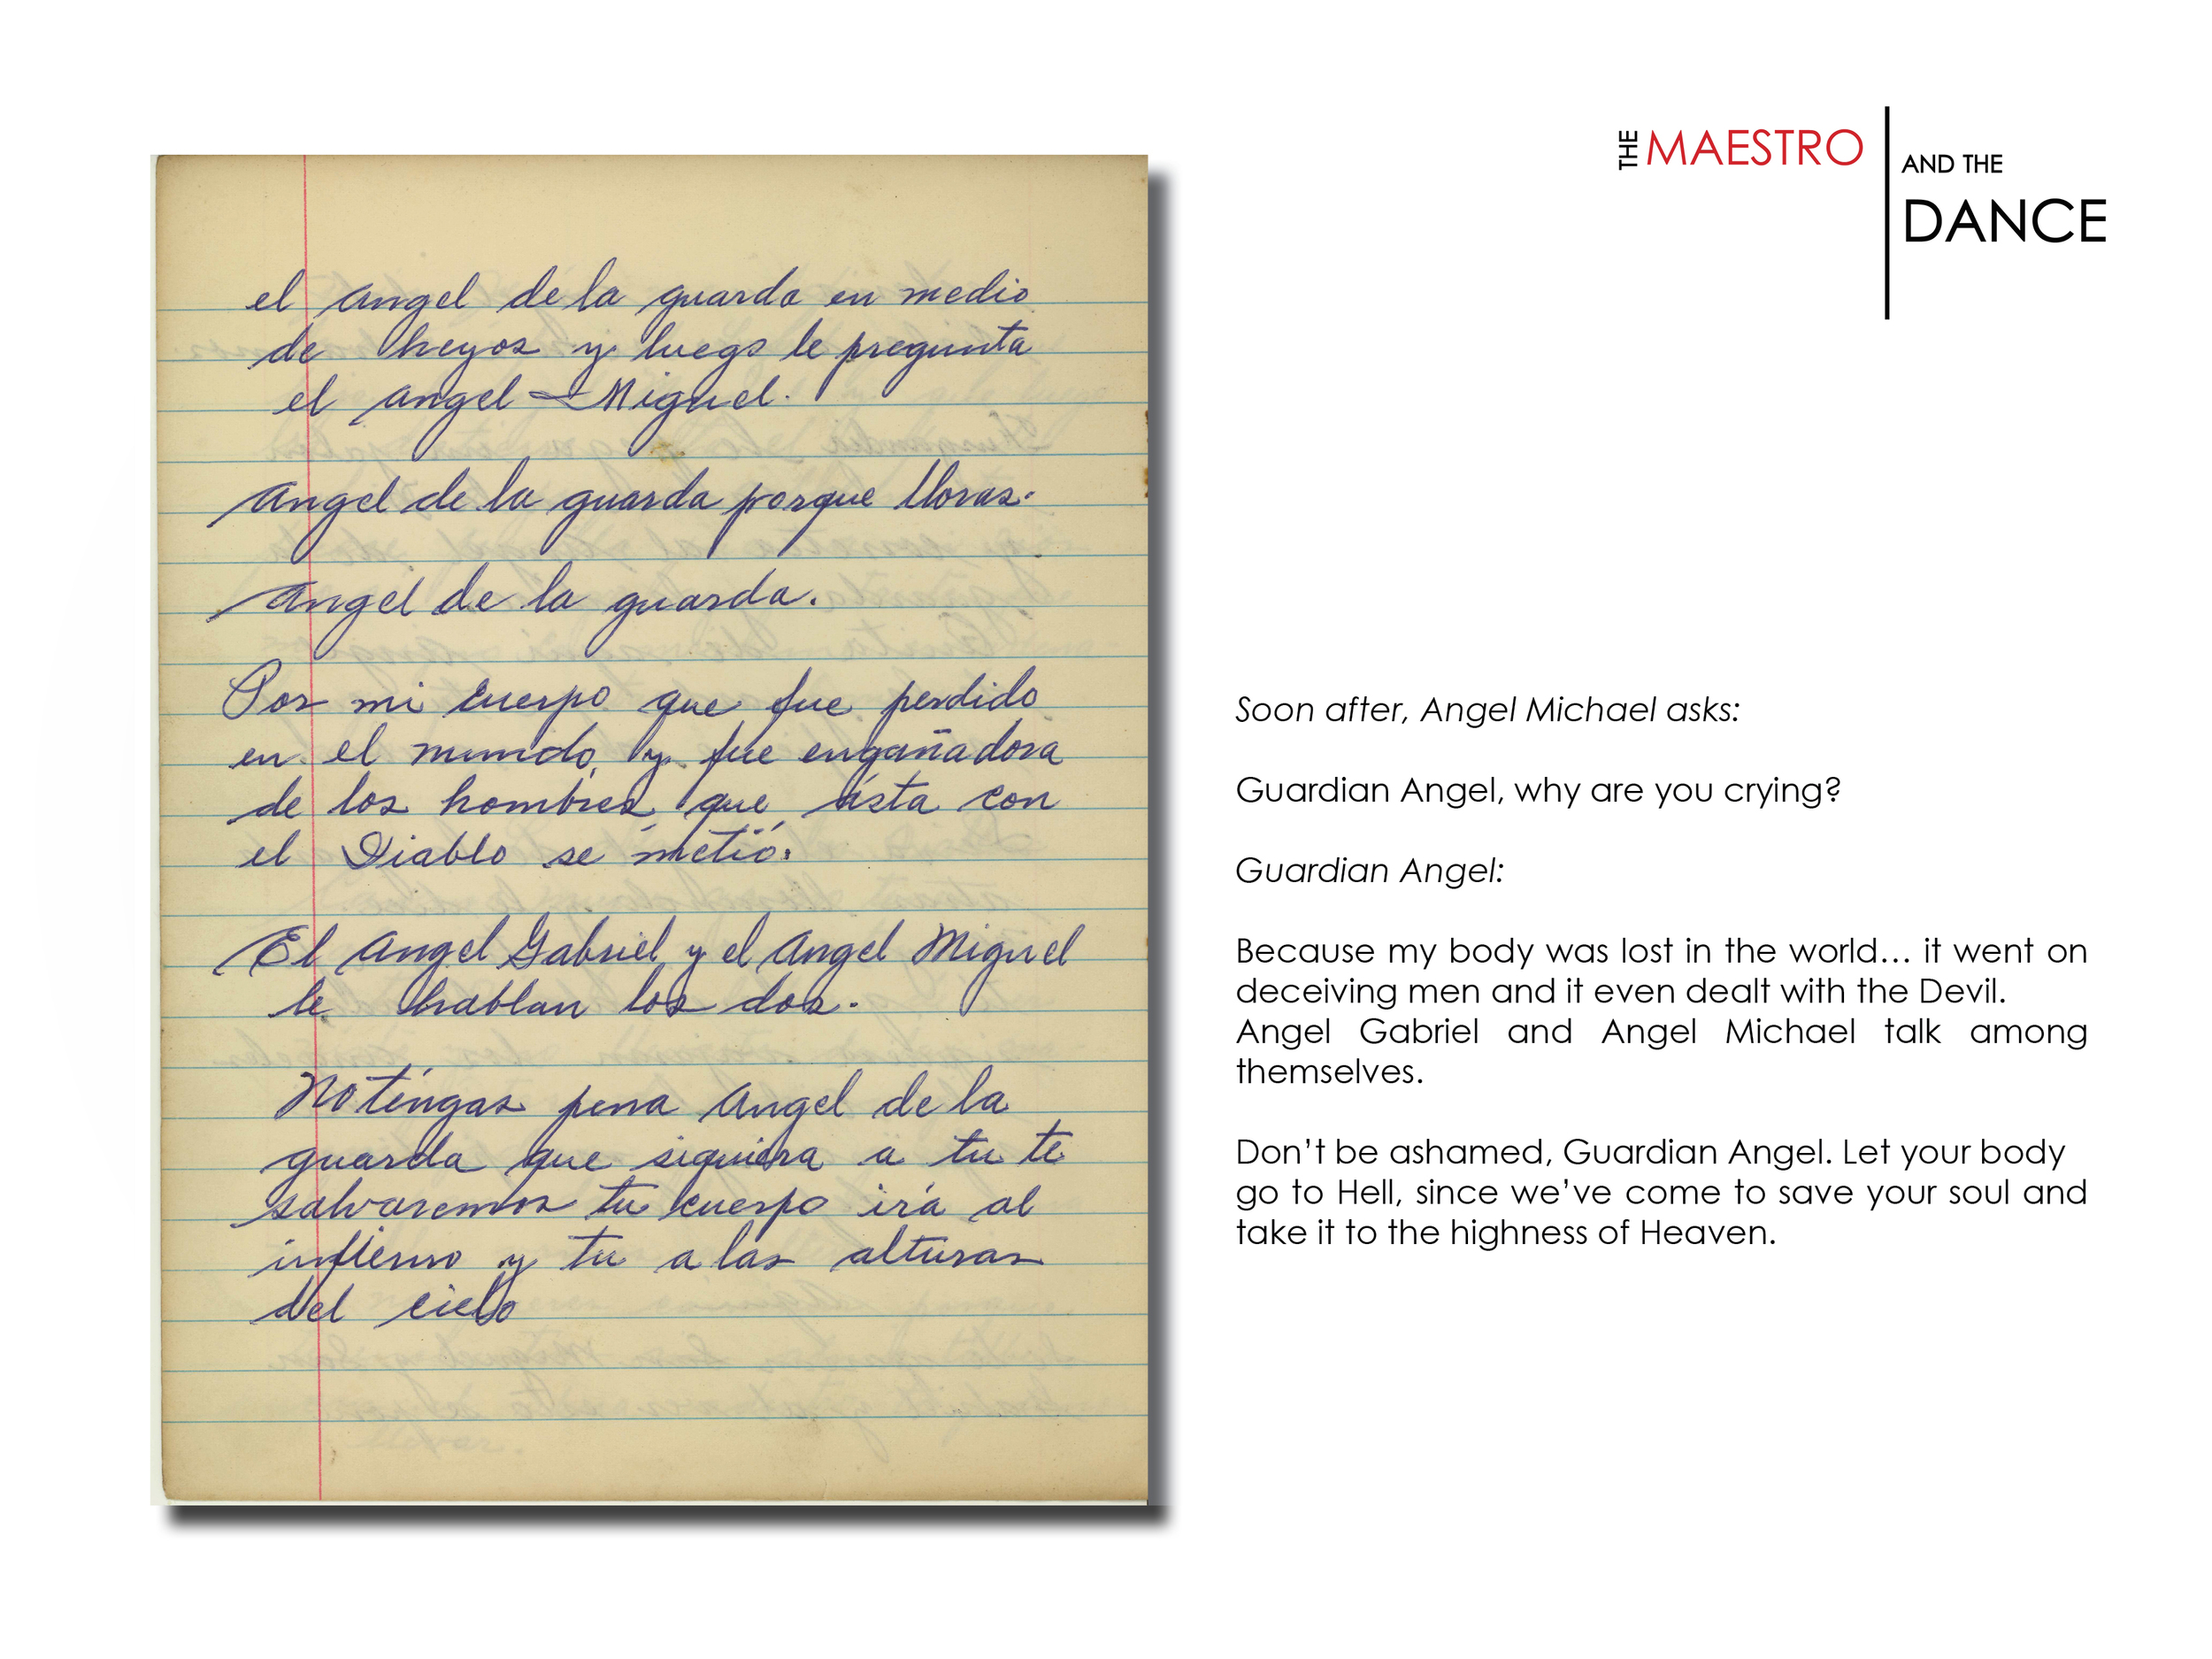 THE MAESTRO AND THE
DANCE
el angel de la guarda en medio
de heyos y luego le pregunta
el angel Miguel.
Angel de la guarda porque lloras.
Angel de la guarda.
Por mi cuerpo que fue perdido
en el mundo, y fue engañadora
de los hombres, que ásta con
el Diablo se metió.
El Angel Gabriel y el Angel Miguel
le hablan los dos.
No tengas pena Angel de la
guarda que siquiera a tu te
salvaremos tu cuerpo irá al
infierno y tu a las alturas
del cielo
Soon after, Angel Michael asks:
Guardian Angel, why are you crying?
Guardian Angel:
Because my body was lost in the world... it went on
deceiving men and it even dealt with the Devil.
Angel Gabriel and Angel Michael talk among
themselves.
Don't be ashamed, Guardian Angel. Let your body
go to Hell, since we've come to save your soul and
take it to the highness of Heaven.